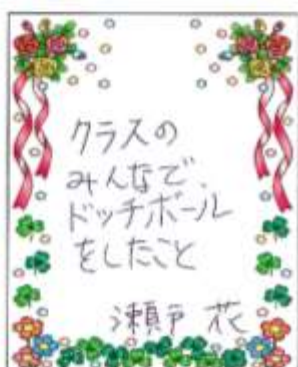 クラスの
みんなで、
ドッチボール
をしたこと
瀬戸 花